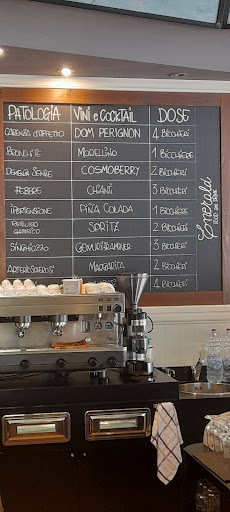 PATOLOGIA VINI e COCKTAIL DOSE
CARENZA D'AFFETTO DOM PERIGNON 4 BICCHIERI
BRONCHITE MORELLINO 1 BICCHIERE
DEMENZA SENILE COSMOBERRY 2 BICCHIERI
FEBBRE CHIANTI 3 BICCHIERI
IPERTENSIONE PIÑA COLADA 1 BICCHIERE
SPRITZ 2 BICCHIERI
SINGHIOZZO GEWURTZRAMINER 3 BICCHIERI
ARTERIOSCLEROSI MARGARITA 4 BICCHIERI
Emerald